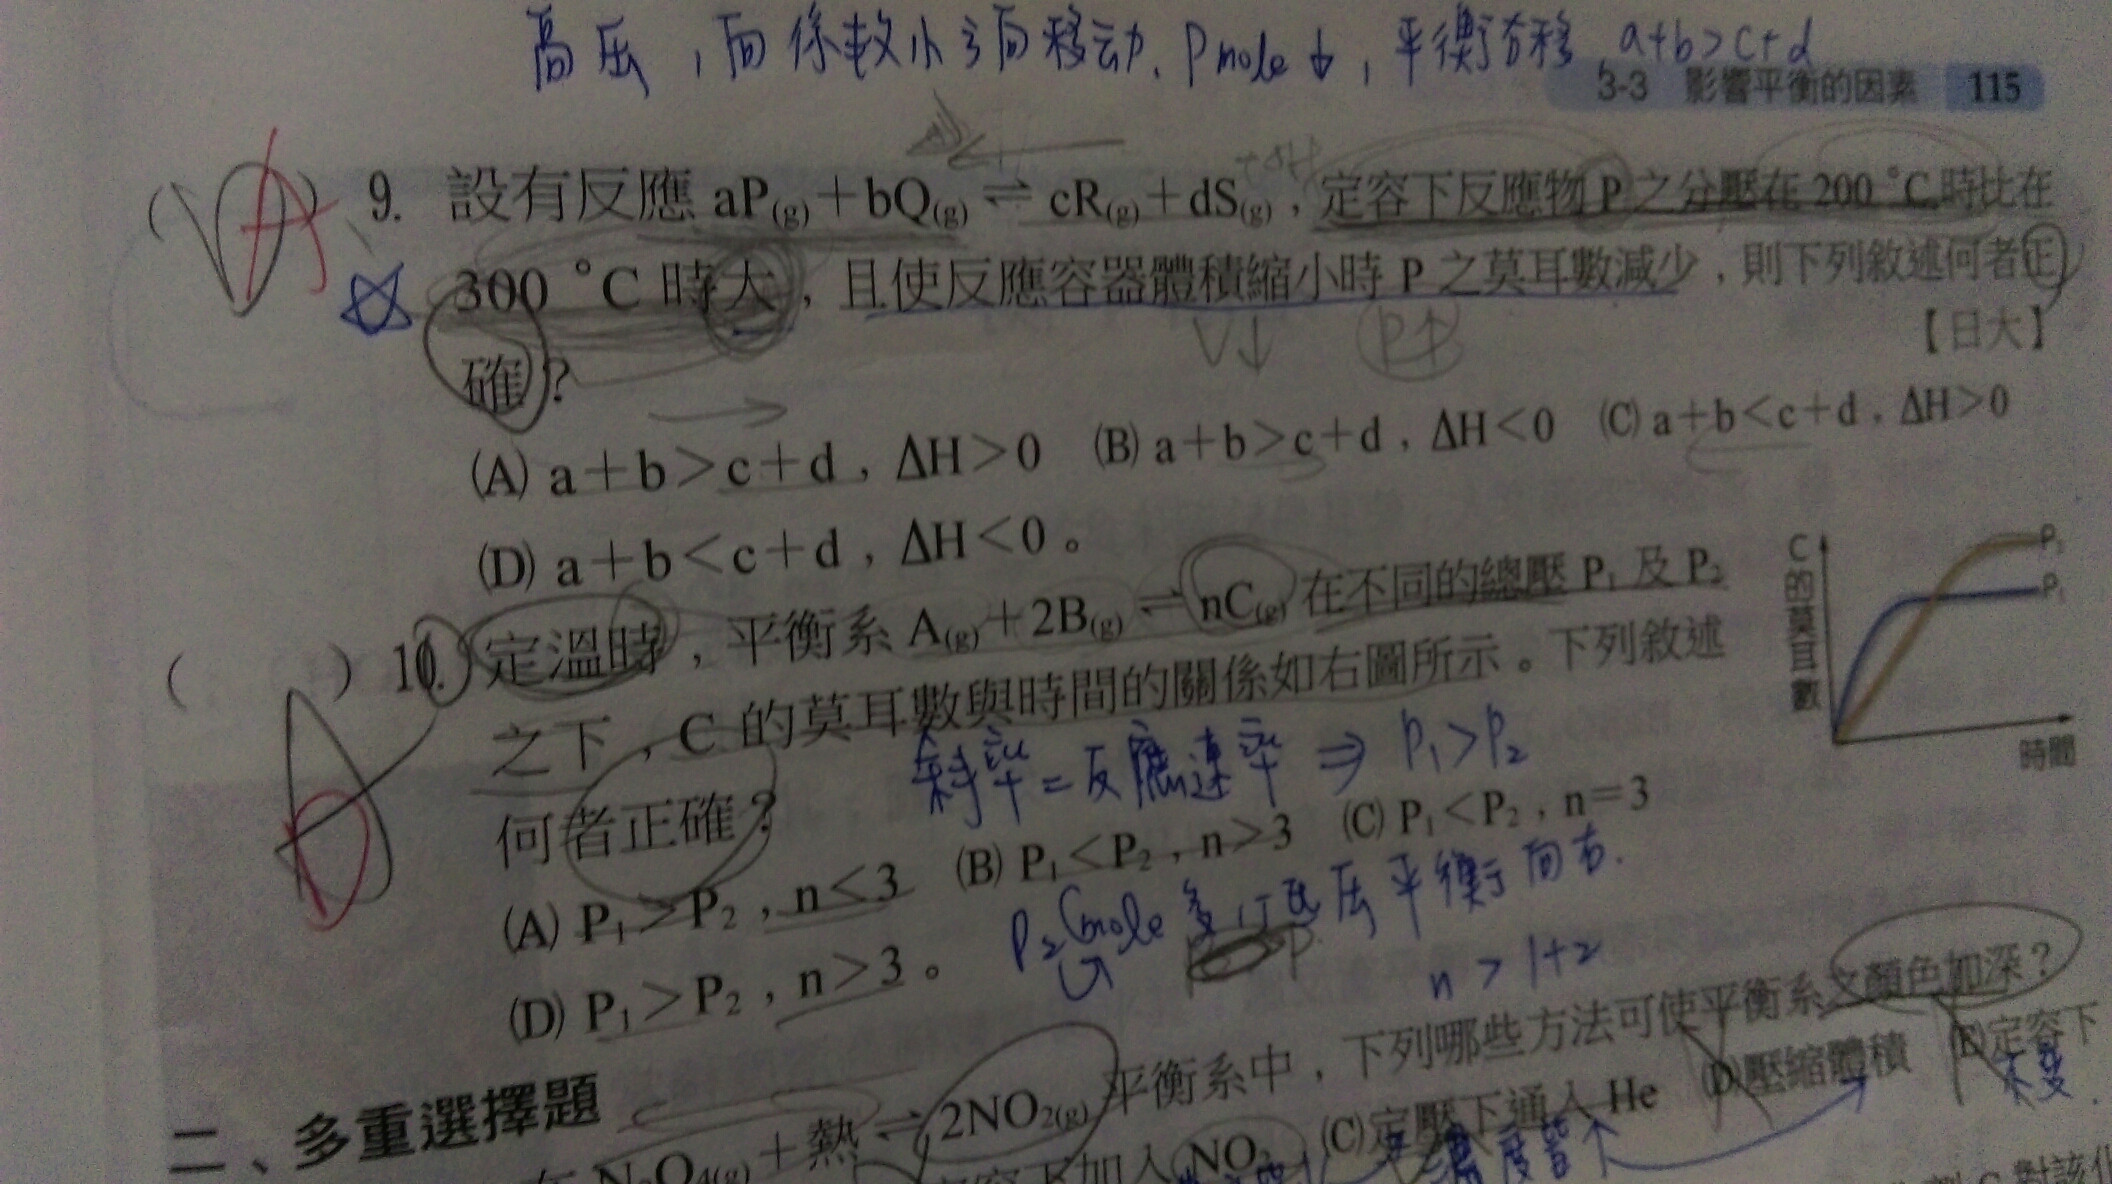 高压,向係數小方向移动. P mole↓,平衡右移 a+b>c+d
3-3 影響平衡的因素 115
( A ) 9. 設有反應 aP(g)+bQ(g)⇌cR(g)+dS(g),定容下反應物 P 之分壓在 200 °C 時比在
300 °C 時大,且使反應容器體積縮小時 P 之莫耳數減少,則下列敘述何者正
V↓ P↑
確? 【日大】
(A) a+b>c+d,ΔH>0 (B) a+b>c+d,ΔH<0 (C) a+b<c+d,ΔH>0
(D) a+b<c+d,ΔH<0。
( ) 10. 定溫時,平衡系 A(g)+2B(g)⇌nC(g) 在不同的總壓 P₁ 及 P₂
之下,C 的莫耳數與時間的關係如右圖所示。下列敘述
斜率=反應速率⇒P₁>P₂
何者正確?
C的莫耳數
P₂
P₁
時間
(A) P₁>P₂,n<3 (B) P₁<P₂,n>3 (C) P₁<P₂,n=3
P₂ C mole 多,低压平衡向右.
(D) P₁>P₂,n>3。
n>1+2
二、多重選擇題
在 N₂O₄(g)+熱⇌2NO₂(g) 平衡系中,下列哪些方法可使平衡系之顏色加深?
定容下加入 NO₂ (C)定壓下通入 He (D)壓縮體積 (E)定容下
不變.
濃度皆↑
對該